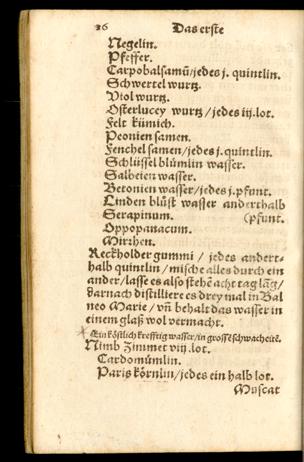 26 Das erste
Negelin.
Pfeffer.
Carpobalsamū/jedes j. quintlin.
Schwertel wurtz.
Viol wurtz.
Osterlucey wurtz/jedes iij.lot.
Felt kümich.
Peonien samen.
Fenchel samen/jedes j. quintlin.
Schlüssel blümlin wasser.
Salbeien wasser.
Betonien wasser/jedes j.pfunt.
Linden blůst wasser anderthalb
Serapinum. (pfunt.
Oppopanacum.
Mirrhen.
Reckholder gummi / jedes andert-
halb quintlin/mische alles durch ein
ander/lasse es also stehē acht tag lāg/
darnach distilliere es drey mal in Bal
neo Marie/vñ behalt das wasser in
einem glaß wol vermacht.
Ein köstlich krefftig wasser/in grosse schwacheitē.
Nimb Zimmet viij.lot.
Cardomůmlin.
Paris körnlin/jedes ein halb lot.
Muscat